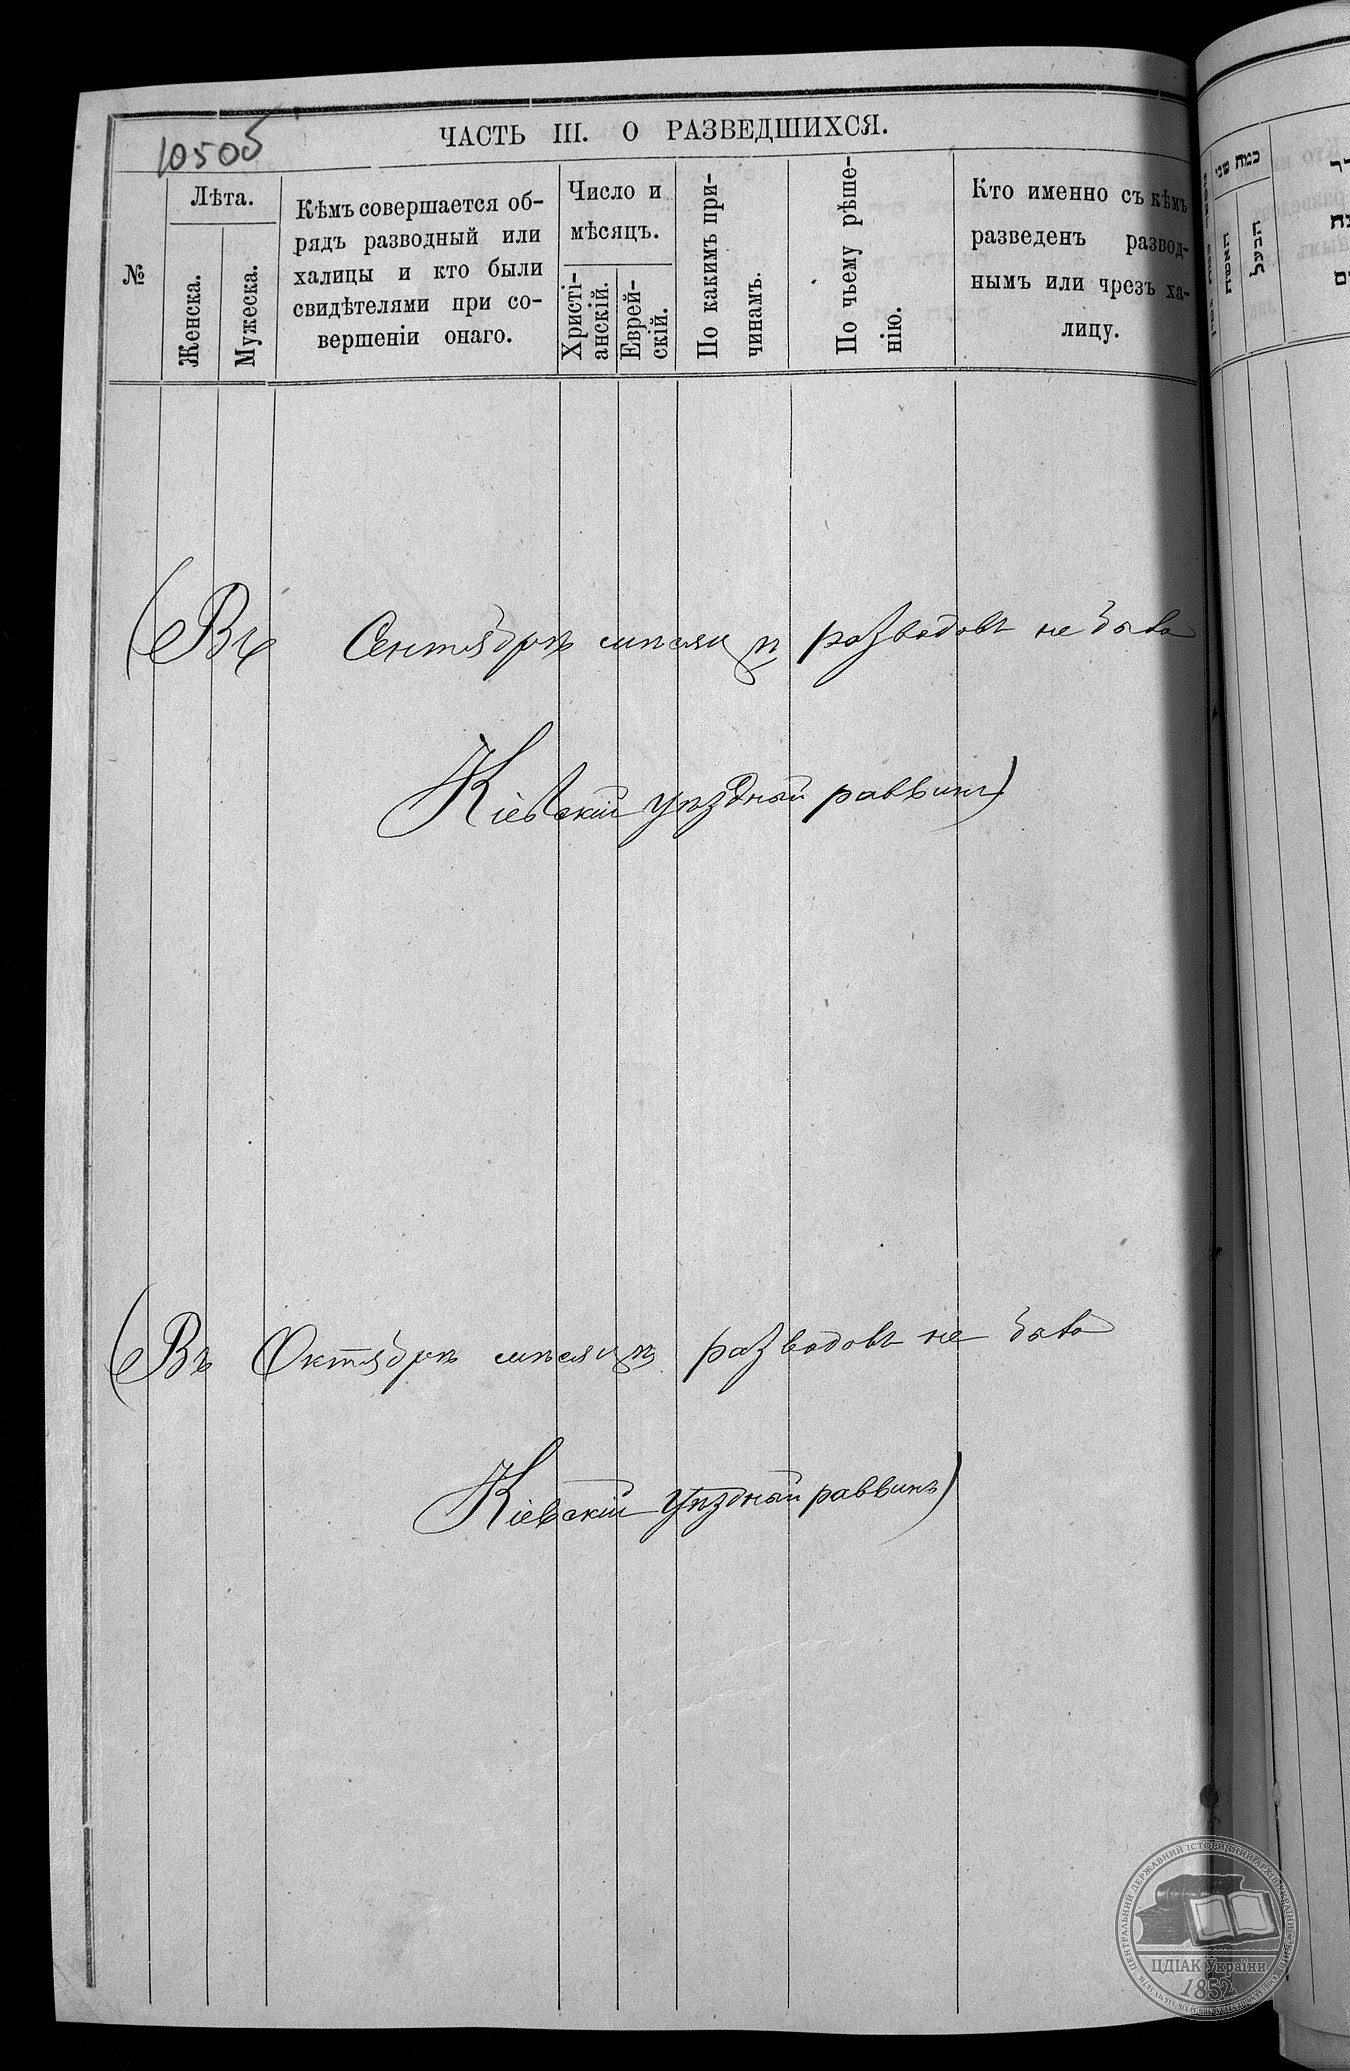 1050об
ЧАСТЬ III. О РАЗВЕДШИХСЯ.
№
Лѣта.
Женска.
Мужеска.
Кѣмъ совершается об-
рядъ разводный или
халицы и кто были
свидѣтелями при со-
вершеніи онаго.
Число и
мѣсяцъ.
Христі-
анскій.
Еврей-
скій.
По какимъ при-
чинамъ.
По чьему рѣше-
нію.
Кто именно съ кѣмъ
разведенъ развод-
нымъ или чрезъ ха-
лицу.
כמה שני
האשה
הבעל
(Въ Сентябрѣ мѣсяцѣ разводовъ не было
Кіевскій уѣздный раввинъ)
(Въ Октябрѣ мѣсяцѣ разводовъ не было
Кіевскій уѣздный раввинъ)
ЦЕНТРАЛЬНИЙ ДЕРЖАВНИЙ ІСТОРИЧНИЙ АРХІВ УКРАЇНИ
ЦДІАК України
1852